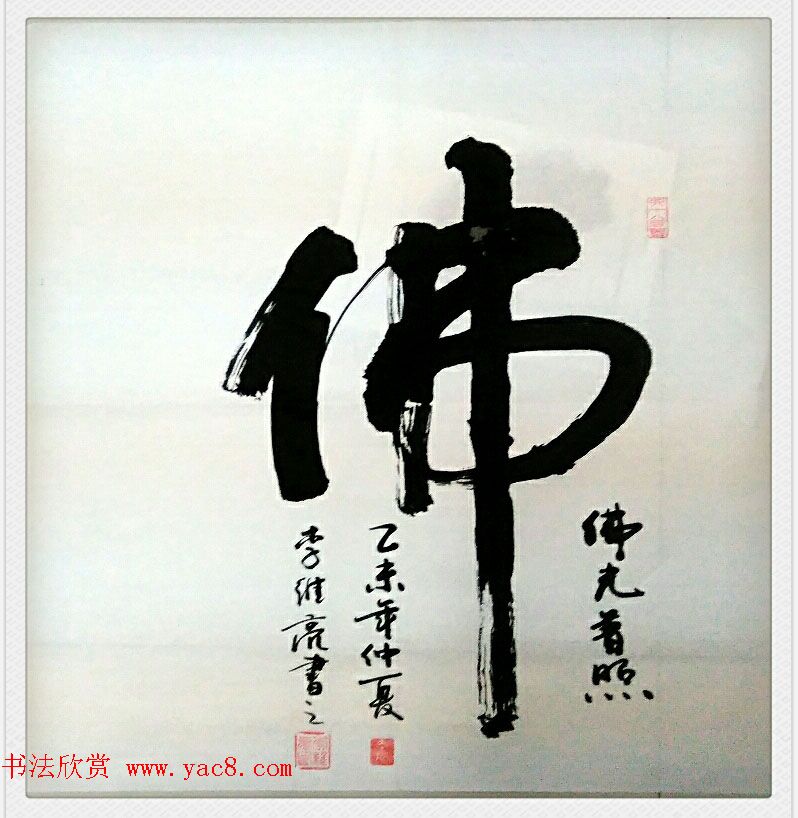 佛
佛光普照
乙未年仲夏
李维亮書之
书法欣赏 www.yac8.com